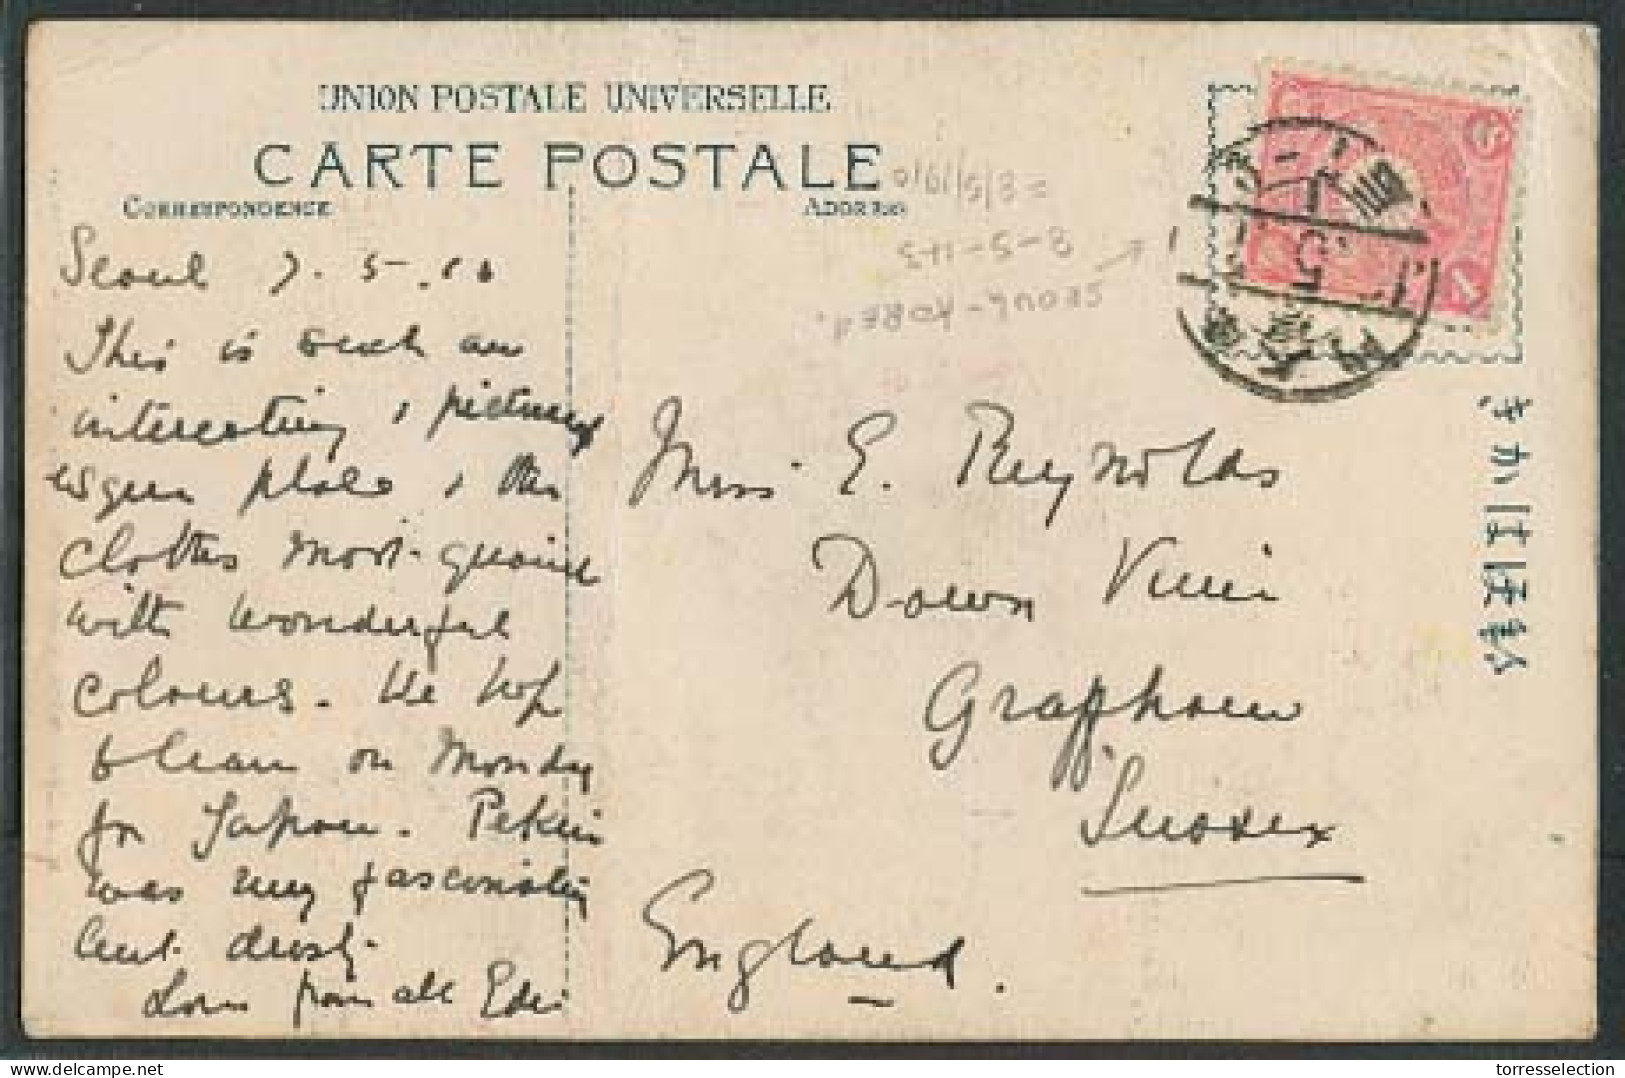 UNION POSTALE UNIVERSELLE
CARTE POSTALE
CORRESPONDENCE
ADDRESS
Seoul 7.5.10
This is such an
interesting & pictures
que place & the
clothes most quaint
with wonderful
colours. We hope
to leave on Monday
for Japan. Pekin
was very fascinating
but dusty.
Love from all Edie
Miss E. Reynolds
Down View
Graffham
Sussex
England.
= 8/5/1910
8-5-43
SEOUL-KOREA.
きかは便郵
torresselection